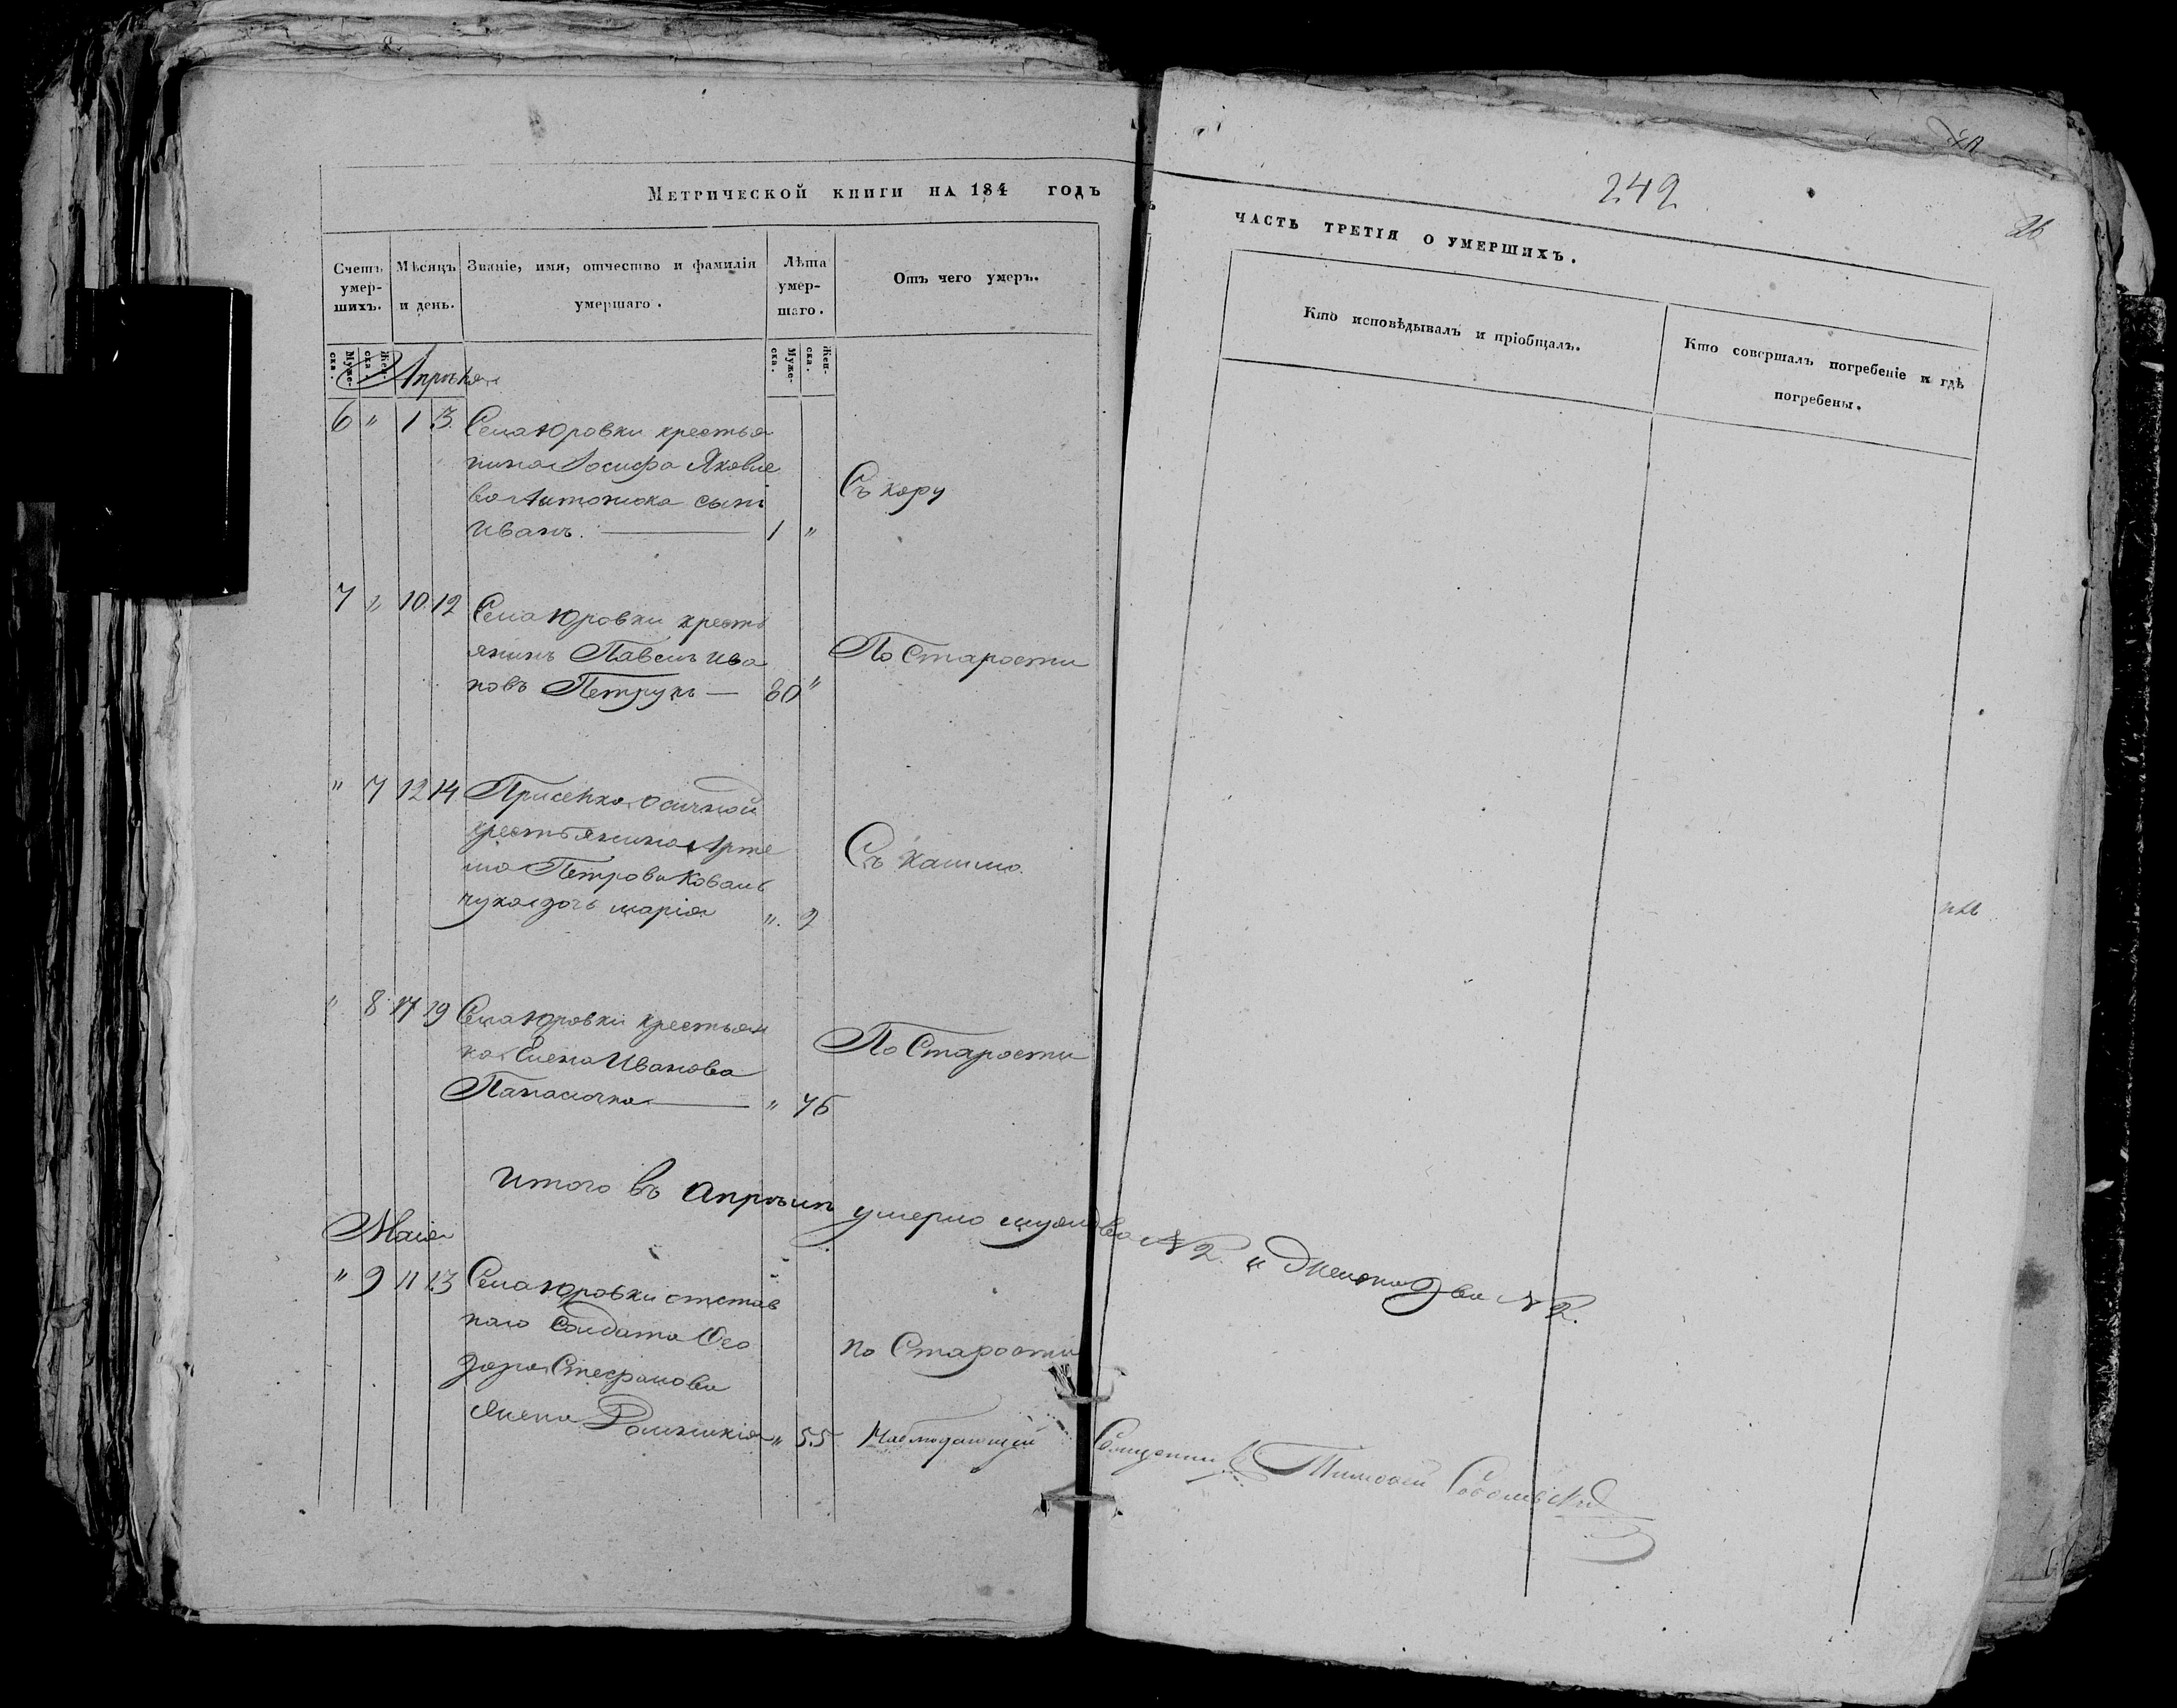 Метрической книги на 184 годъ
249
часть третія о умершихъ.
Счетъ умершихъ.
Мѣсяцъ и день.
Званіе, имя, отчество и фамилія умершаго.
Лѣта умершаго.
Отъ чего умеръ.
Кто исповѣдывалъ и пріобщалъ.
Кто совершалъ погребеніе и гдѣ погребены.
Муже-ска.
Жен-ска.
Муже-ска.
Жен-ска.
Апрѣля
6 " 1 3 Села Юровки крестья
нина Іосифа Яковле
ва Антонюка сынъ
Иванъ. 1 "
Съ кору
7 " 10 12 Села Юровки кресть
янинъ Павелъ Ива
новъ Петрукъ 80 "
По Старости
" 7 12 14 Присѣлка Осичной
крестьянина Арте
ма Петрова Коваль
чука дочь Марія " 2
Съ кашлю
" 8 17 19 Села Юровки крестьян
ка Елена Иванова
Панасючка " 75
По Старости
Итого въ Апрѣлѣ умерло мужска № 2. и Женска два № 2.
Маія
" 9 11 13 Села Юровки отстав
наго Солдата Ѳео
дора Стефанова
жена " 55
по Старости
Наблюдающій Священникъ Тимоѳей